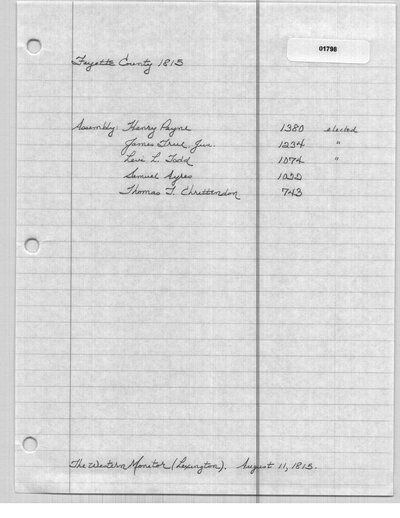 01798
Fayette County 1815
Assembly: Henry Payne 1380 elected
James True Jun. 1234 "
Levi L. Todd 1074 "
Samuel Ayres 1022
Thomas T. Chrittendon 743
The Western Monitor (Lexington). August 11, 1815.